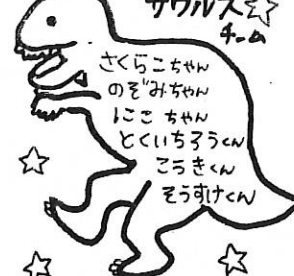 サウルス☆
チーム
さくらこちゃん
のぞみちゃん
にこちゃん
とくいちろうくん
こうきくん
そうすけくん